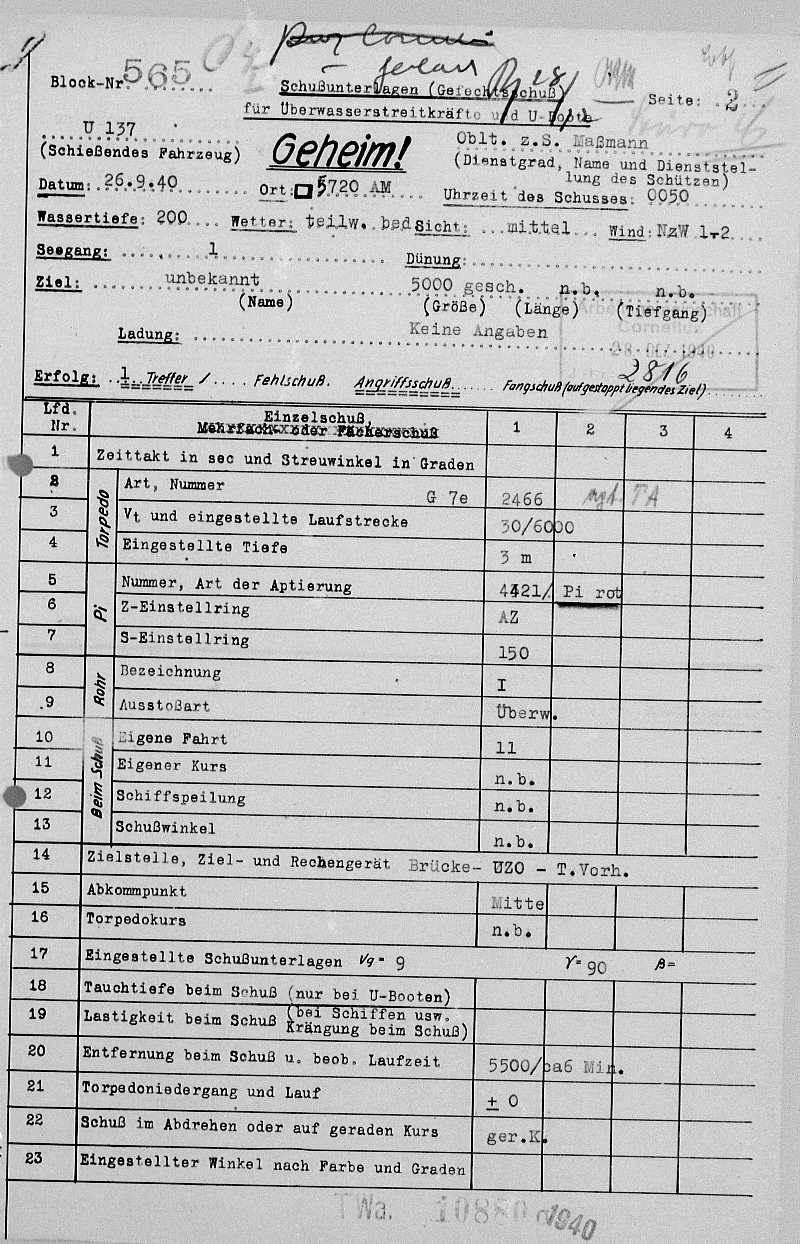 Block-Nr. 565
Schußunterlagen (Gefechtsschuß)
für Überwasserstreitkräfte und U-Boote
Seite: 2
U 137
(Schießendes Fahrzeug)
Geheim!
Oblt. z.S. Maßmann
(Dienstgrad, Name und Dienststel-
lung des Schützen)
Datum: 26.9.40 Ort: 5720 AM Uhrzeit des Schusses: 0050
Wassertiefe: 200 Wetter: teilw. bed Sicht: mittel Wind: NzW 1-2
Seegang: 1 Dünung:
Ziel: unbekannt 5000 gesch. n.b. n.b.
(Name) (Größe) (Länge) (Tiefgang)
Ladung: Keine Angaben
Cornelius
2816
Erfolg: 1 Treffer / Fehlschuß. Angriffsschuß Fangschuß (aufgestoppt liegendes Ziel)
Lfd. Nr. Einzelschuß, 1 2 3 4
Mehrfach- oder Fächerschuß
1 Zeittakt in sec und Streuwinkel in Graden
Torpedo
2 Art, Nummer G 7e 2466 TA
3 Vt und eingestellte Laufstrecke 30/6000
4 Eingestellte Tiefe 3 m
Pi
5 Nummer, Art der Aptierung 4421/ Pi rot
6 Z-Einstellring AZ
7 S-Einstellring 150
Rohr
8 Bezeichnung I
9 Ausstoßart Überw.
Beim Schuß
10 Eigene Fahrt 11
11 Eigener Kurs n.b.
12 Schiffspeilung n.b.
13 Schußwinkel n.b.
14 Zielstelle, Ziel- und Rechengerät Brücke- UZO - T.Vorh.
15 Abkommpunkt Mitte
16 Torpedokurs n.b.
17 Eingestellte Schußunterlagen Vg= 9 γ= 90 β=
18 Tauchtiefe beim Schuß (nur bei U-Booten)
19 Lastigkeit beim Schuß (bei Schiffen usw. Krängung beim Schuß)
20 Entfernung beim Schuß u. beob. Laufzeit 5500/ca6 Min.
21 Torpedoniedergang und Lauf ± 0
22 Schuß im Abdrehen oder auf geraden Kurs ger.K.
23 Eingestellter Winkel nach Farbe und Graden
TWa. 1940